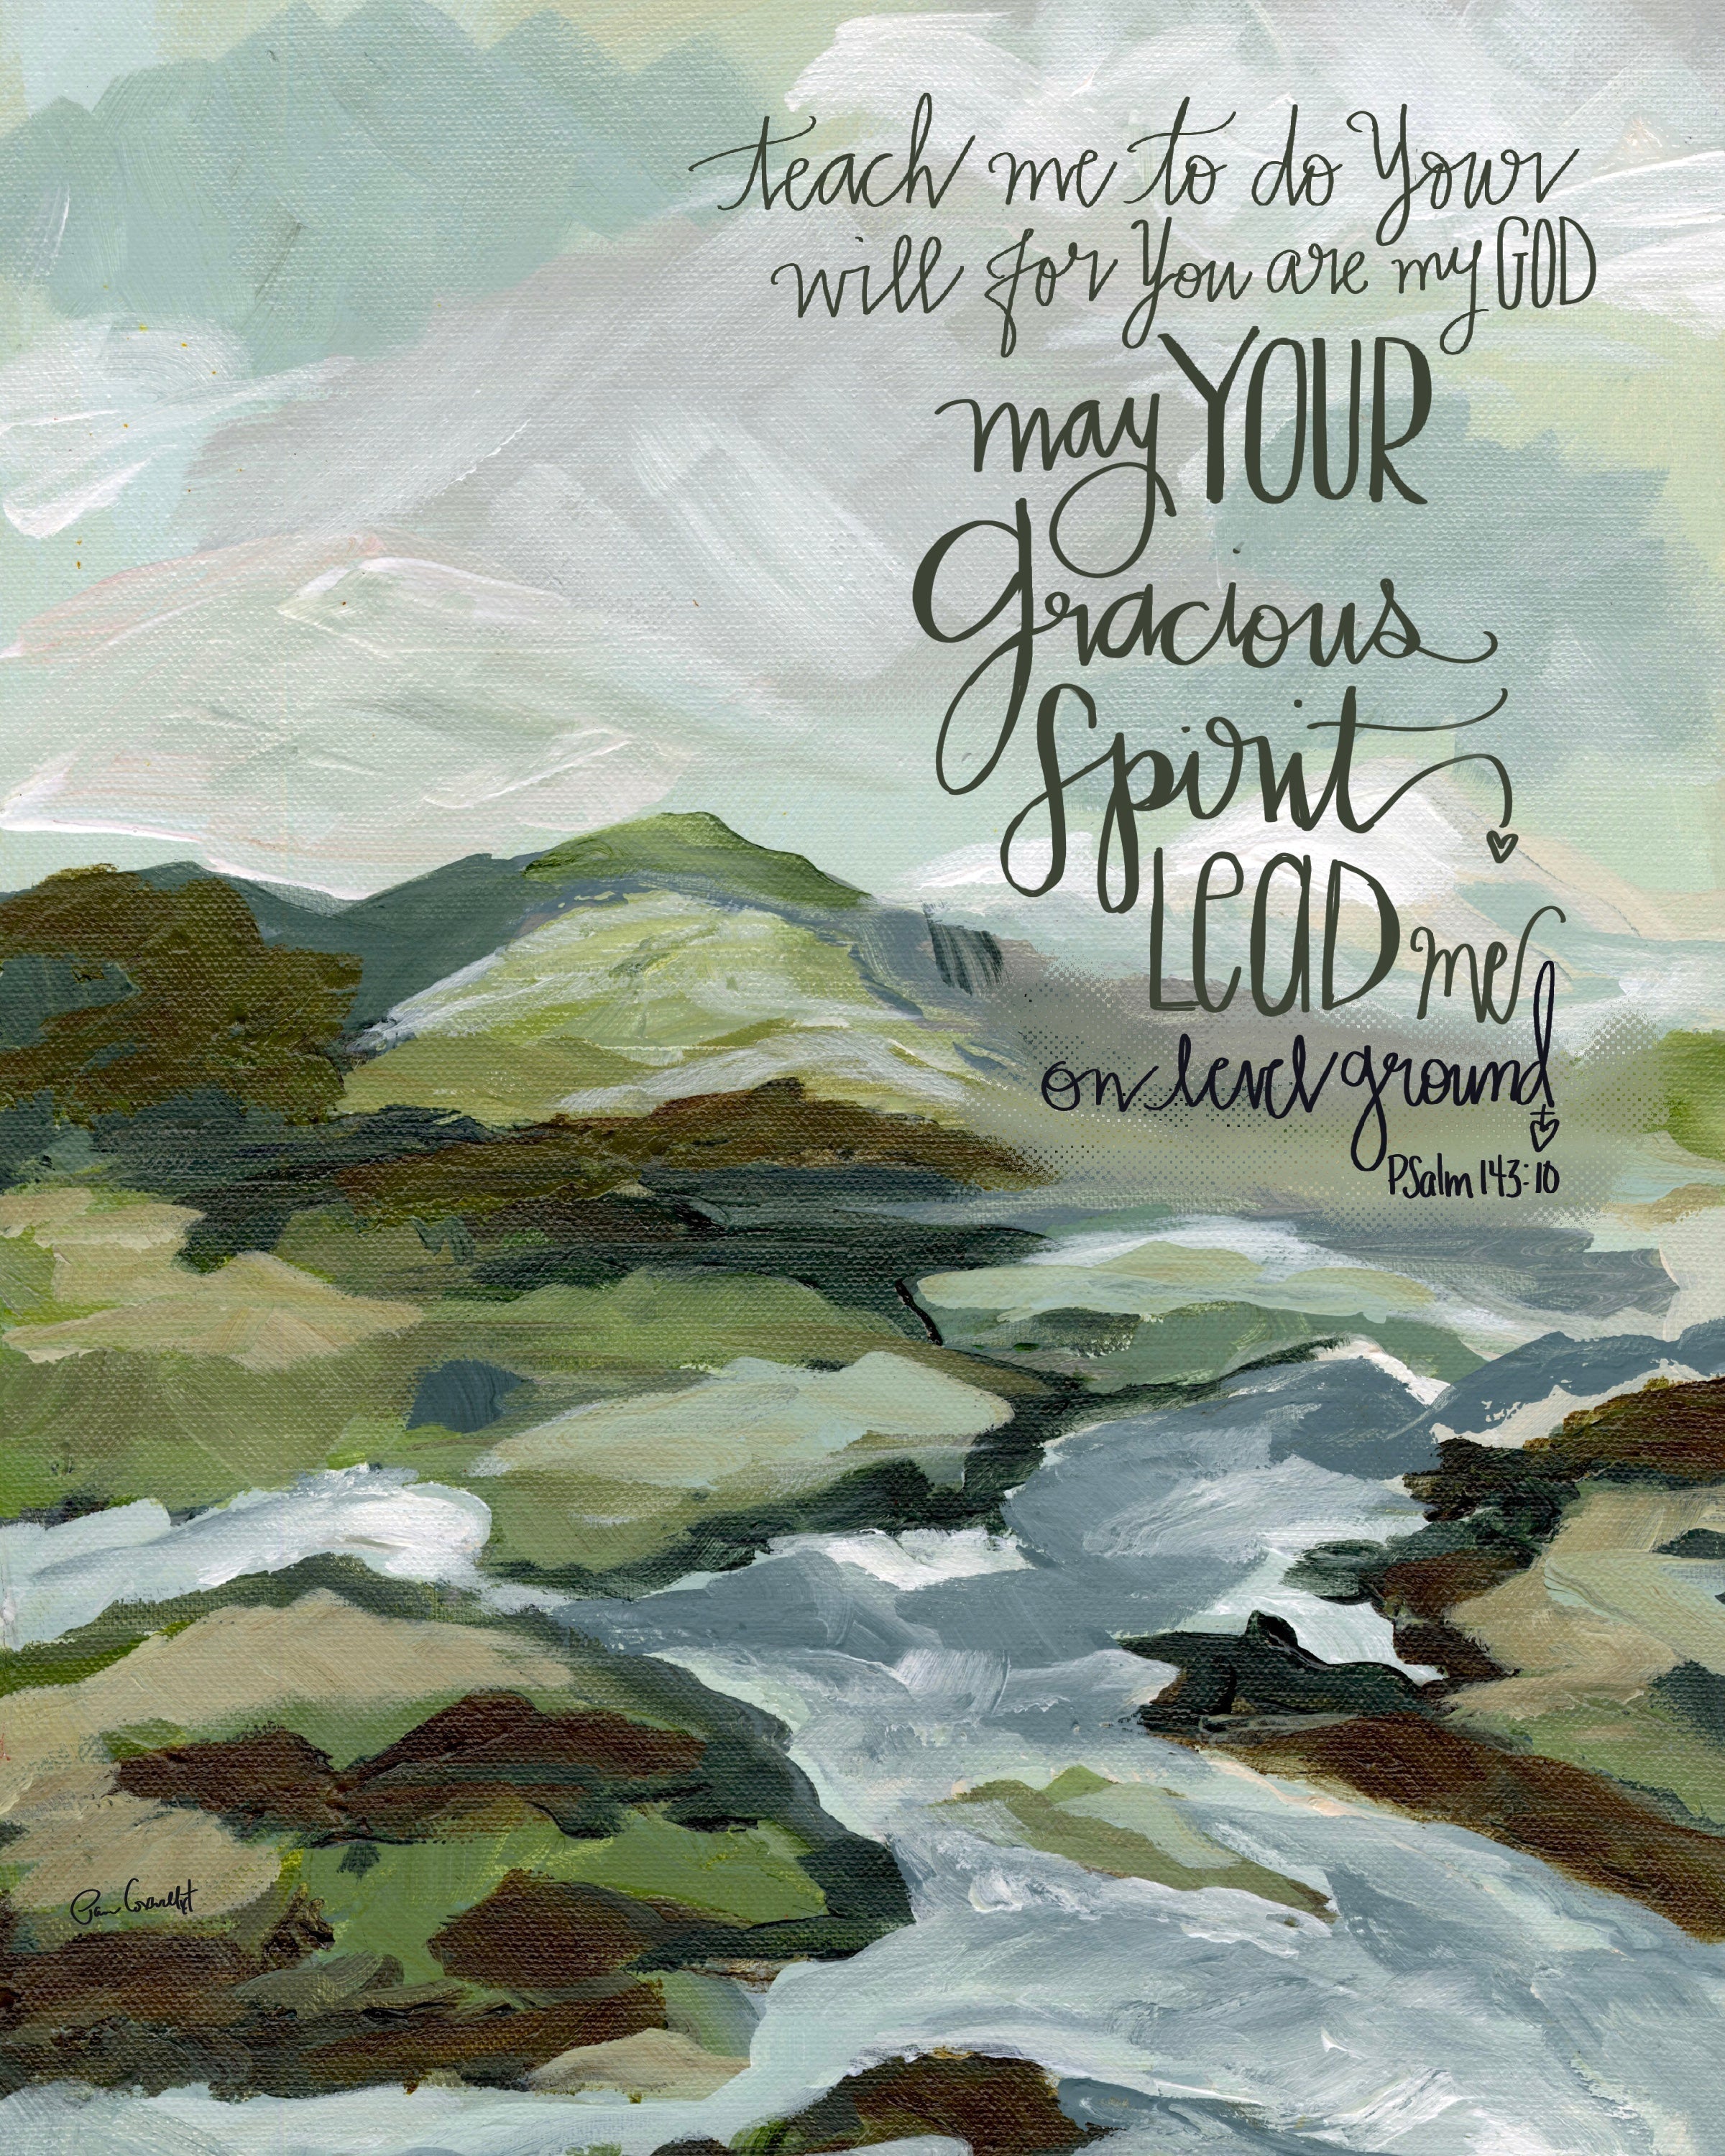 teach me to do Your
will for You are my GOD
may YOUR
gracious
Spirit
LEAD me
on level ground
PSalm 143:10